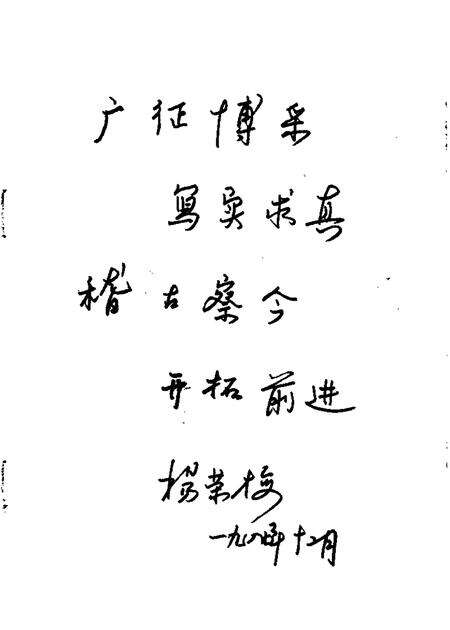 广征博采
寫实求真
稽古察今
开拓前进
杨荣
一九八 年十二月